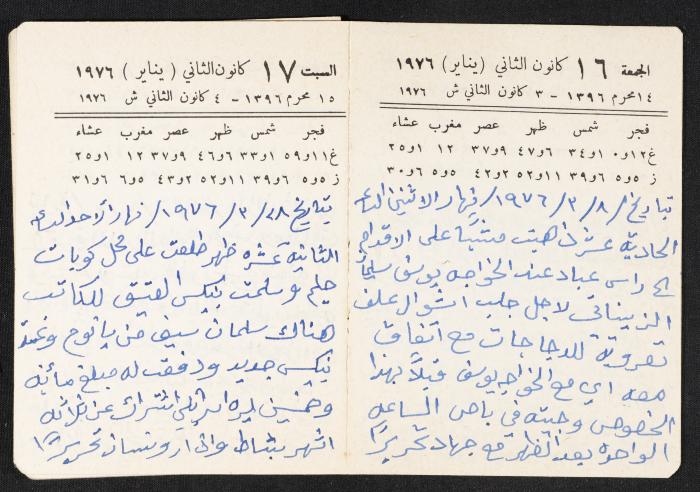 الجمعة ١٦ كانون الثاني (يناير) ١٩٧٦
١٤ محرم ١٣٩٦ - ٣ كانون الثاني ش ١٩٧٦
فجر شمس ظهر عصر مغرب عشاء
غ ١٢و٠ ١و٣٤ ٦و٤٧ ٩و٣٧ ١٢ ١و٢٥
ز ٥و٥ ٦و٣٩ ١١و٥٢ ٢و٤٢ ٥و٥ ٦و٣٠
بتاريخ /٨/ ٣/ ١٩٧٦/ نهار الاثنين الساعه
الحاديه عشر ذهبت مشيًا على الاقدام
الى راس عباد عند الخواجه يوسف سليمان
الزيناتي لاجل جلب اشوال علف
تعرونة للدجاجات مع اتفاق
معه اي مع الخواجه يوسف قبلاً بهذا
الخصوص وجيته في باص الساعه
الواحده بعد الظهر مع جهاد تحريرًا
السبت ١٧ كانون الثاني (يناير) ١٩٧٦
١٥ محرم ١٣٩٦ - ٤ كانون الثاني ش ١٩٧٦
فجر شمس ظهر عصر مغرب عشاء
غ ١١و٥٩ ١و٣٣ ٦و٤٦ ٩و٣٧ ١٢ ١و٢٥
ز ٥و٥ ٦و٣٩ ١١و٥٢ ٢و٤٣ ٥و٦ ٦و٣١
بتاريخ ٢٨/ ٣/ ١٩٧٦/ نهار الاحد الساعه
الثانية عشره ظهر طلعت على محل كوبات
حلم وسلمت بنكس العتيق للكاتب
هناك سلمان سيف من يانوح وعند
بنكس جديد ودفعت له مبلغ مائه
وخمسين ليره اسرائيلي اشتراك عن ثلاثه
اشهر شباط واذار ونيسان تحريرًا